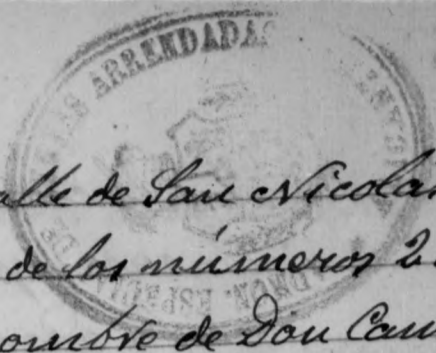 ARRENDADAS
alle de San Nicolas
de los números 2
ombre de Don Cam